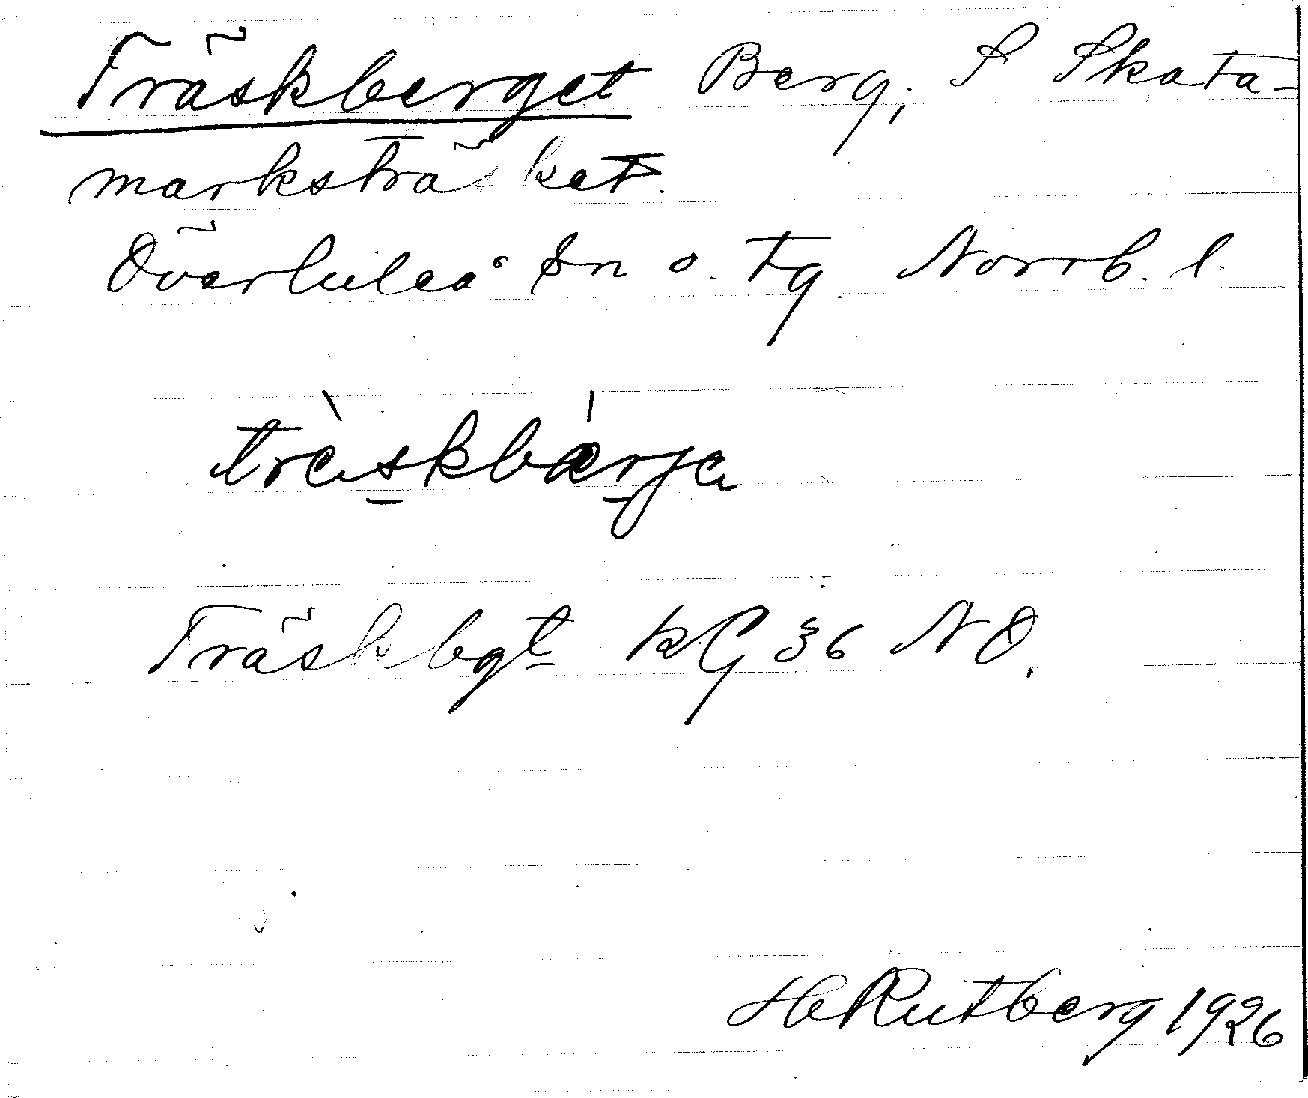 Träskberget Berg, S Skata-
marksträsket.
Överluleå sn o. tg Norrb. l.
träskbærja
Träskbgt kG 36 NO.
H Rutberg 1926